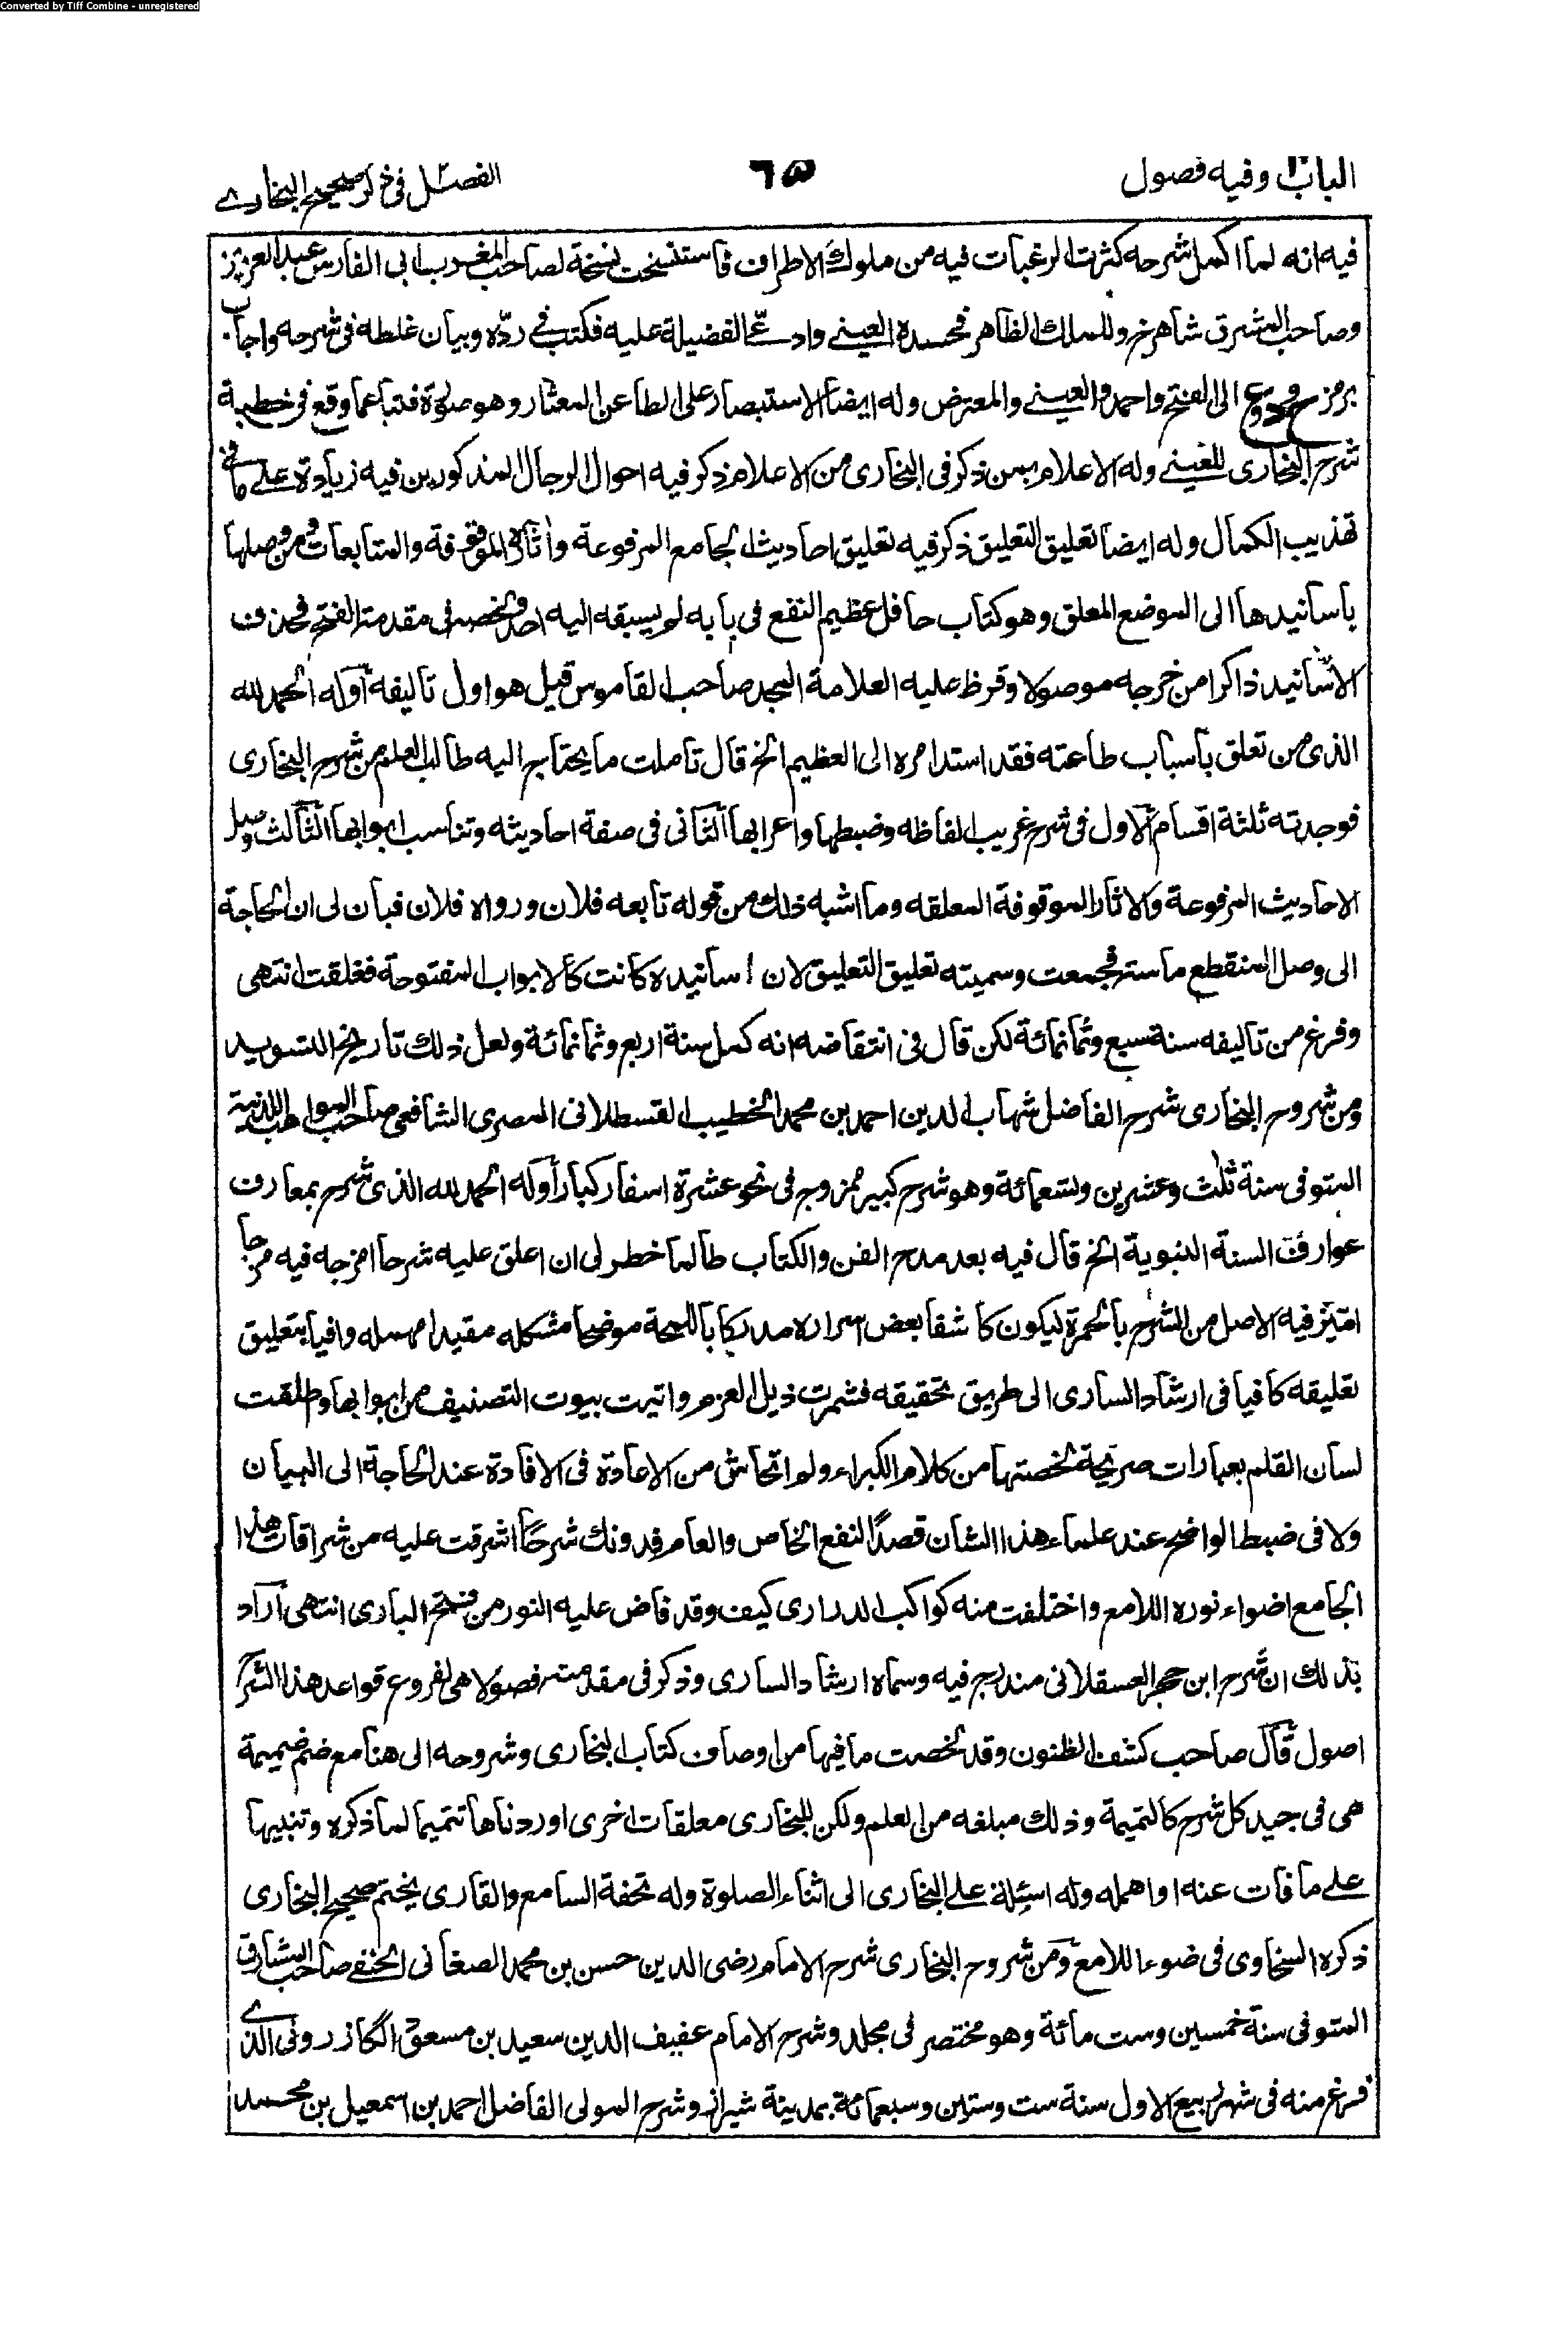 Converted by Tiff Combine - unregistered
الباب وفيه فصول
٦٥
الفصل في ذكر صحيح البخاري
فيه انه لما اكمل شرحه كثرت الرغبات فيه من ملوك الاطراف فاستنسخت نسخة لصاحب المغرب ابي الفارس عبد العزيز
وصاحب المشرق شاهرخ وللملك الظاهر فحسده العيني وادعى الفضيلة عليه فكتب في ردّه وبيان غلطه في شرحه واجاب
برمز ح و ع الى الفتح واحمد والعيني والمعترض وله ايضا الاستبصار على الطاعن المعثار وهو صورة فتيا عما وقع في خطبة
شرح البخارى للعيني وله الاعلام بمن ذكر فى البخارى من الاعلام ذكر فيه احوال الرجال المذكورين فيه زيادة على ما في
تهذيب الكمال وله ايضا تعليق التعليق ذكر فيه تعليق احاديث الجامع المرفوعة واثاره الموقوفة والمتابعات ومن وصلها
باسانيدها الى الموضع المعلق وهو كتاب حافل عظيم النفع فى بابه لم يسبقه اليه احد ولخصه فى مقدمة الفتح فحذف
الاسانيد ذاكرا من خرجه موصولا وقرظ عليه العلامة المجد صاحب القاموس قيل هو اول تاليفه اوله الحمد لله
الذى من تعلق باسباب طاعته فقد استد امره الى العظيم الخ قال تاملت ما يحتاج اليه طالب العلم من شرح البخارى
فوجدته ثلثة اقسام الاول فى شرح غريب الفاظه وضبطها واعرابها الثانى فى صفة احاديثه وتناسب ابوابها الثالث وصل
الاحاديث المرفوعة والاثار الموقوفة المعلقه وما اشبه ذلك من قوله تابعه فلان ورواه فلان فبان لى ان الحاجة
الى وصل المنقطع ماسة فجمعت وسميته تعليق التعليق لان اسانيده كانت كالابواب المفتوحة فغلقت انتهى
وفرغ من تاليفه سنة سبع وثمانمائة لكن قال فى انتقاضه انه كمل سنة اربع وثمانمائة ولعل ذلك تاريخ التسويد
ومن شروح البخارى شرح الفاضل شهاب الدين احمد بن محمد الخطيب القسطلانى المصرى الشافعى صاحب المواهب اللدنية
المتوفى سنة ثلث وعشرين وتسعمائة وهو شرح كبير ممزوج فى نحو عشرة اسفار كبار اوله الحمد لله الذى شرح بمعارف
عوارف السنة النبوية الخ قال فيه بعد مدح الفن والكتاب طالما خطر لى ان اعلق عليه شرحا امزجه فيه مزجا
امتيز فيه الاصل من الشرح بالحمرة ليكون كاشفا بعض اسراره مدركا باللمحة موضحا مشكله مقيدا مهمله وافيا بتعليق
تعليقه كافيا فى ارشاد السارى الى طريق تحقيقه فشمرت ذيل العزم واتيت بيوت التصنيف من ابوابها واطلقت
لسان القلم بعبارات صريحة لخصتها من كلام الكبراء ولم اتحاش من الاعادة فى الافادة عند الحاجة الى البيان
ولا فى ضبط الواضح عند علماء هذا الشان قصدًا لنفع الخاص والعام فدونك شرحًا اشرقت عليه من شرافات هذا
الجامع اضواء نوره اللامع واختلفت منه كواكب الدرارى كيف وقد فاض عليه النور من فتح البارى انتهى اراد
بذلك ان شرح ابن حجر العسقلانى مندرج فيه وسماه ارشاد السارى وذكر فى مقدمته فصولا هى لفروع قواعد هذا الشرح
اصول قال صاحب كشف الظنون وقد لخصت ما فيها من اوصاف كتاب البخارى وشروحه الى هنا مع ضم ضميمة
هى فى جيد كل شرح كالتميمة وذلك مبلغه من العلم ولكن للبخارى معلقات اخرى اوردناها تتميما لما ذكره وتنبيها
على ما فات عنه او اهمله وله اسئلة على البخارى الى اثناء الصلوة وله تحفة السامع والقارى بختم صحيح البخارى
ذكره السخاوى فى ضوء اللامع ومن شروح البخارى شرح الامام رضى الدين حسن بن محمد الصغانى الحنفى صاحب المشارق
المتوفى سنة خمسين وست مائة وهو مختصر فى مجلد وشرح الامام عفيف الدين سعيد بن مسعود الكازرونى الذي
فرغ منه فى شهر ربيع الاول سنة ست وستين وسبعمائة بمدينة شيراز وشرح المولى الفاضل احمد بن اسمعيل بن محمد